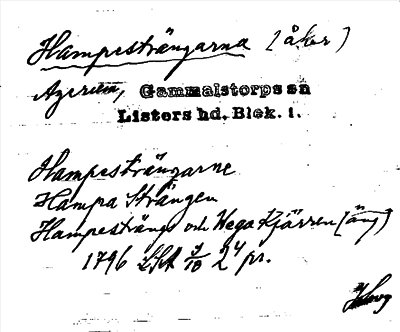 Hampesträngarna [åker]
Agerum, Gammalstorps sn
Listers hd. Blek. l.
Hampesträngarne
Hampa Strängen
Hampesträngs och Wega Kjärren (äng)
1796 LSA 9/10 24 pr.